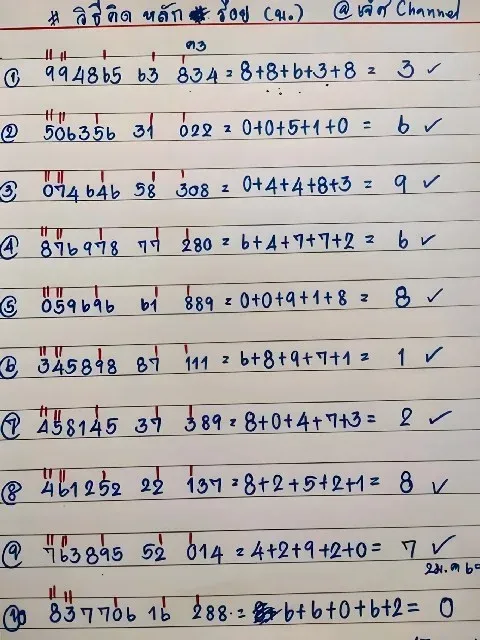 # วิธีคิด หลัก # ร้อย (บ.) @เจ๊ศ Channel
ค3
① 994865 63 834 = 8+8+6+3+8 = 3 ✓
② 506356 31 022 = 0+0+5+1+0 = 6 ✓
③ 074646 58 308 = 0+4+4+8+3 = 9 ✓
④ 876978 77 280 = 6+4+7+7+2 = 6 ✓
⑤ 059696 61 889 = 0+0+9+1+8 = 8 ✓
⑥ 345898 87 111 = 6+8+9+7+1 = 1 ✓
⑦ 458145 37 389 = 8+0+4+7+3 = 2 ✓
⑧ 461252 22 137 = 8+2+5+2+1 = 8 ✓
⑨ 763895 52 014 = 4+2+9+2+0 = 7 ✓
2ม.ค 6
⑩ 837706 16 288 = 6+6+0+6+2 = 0